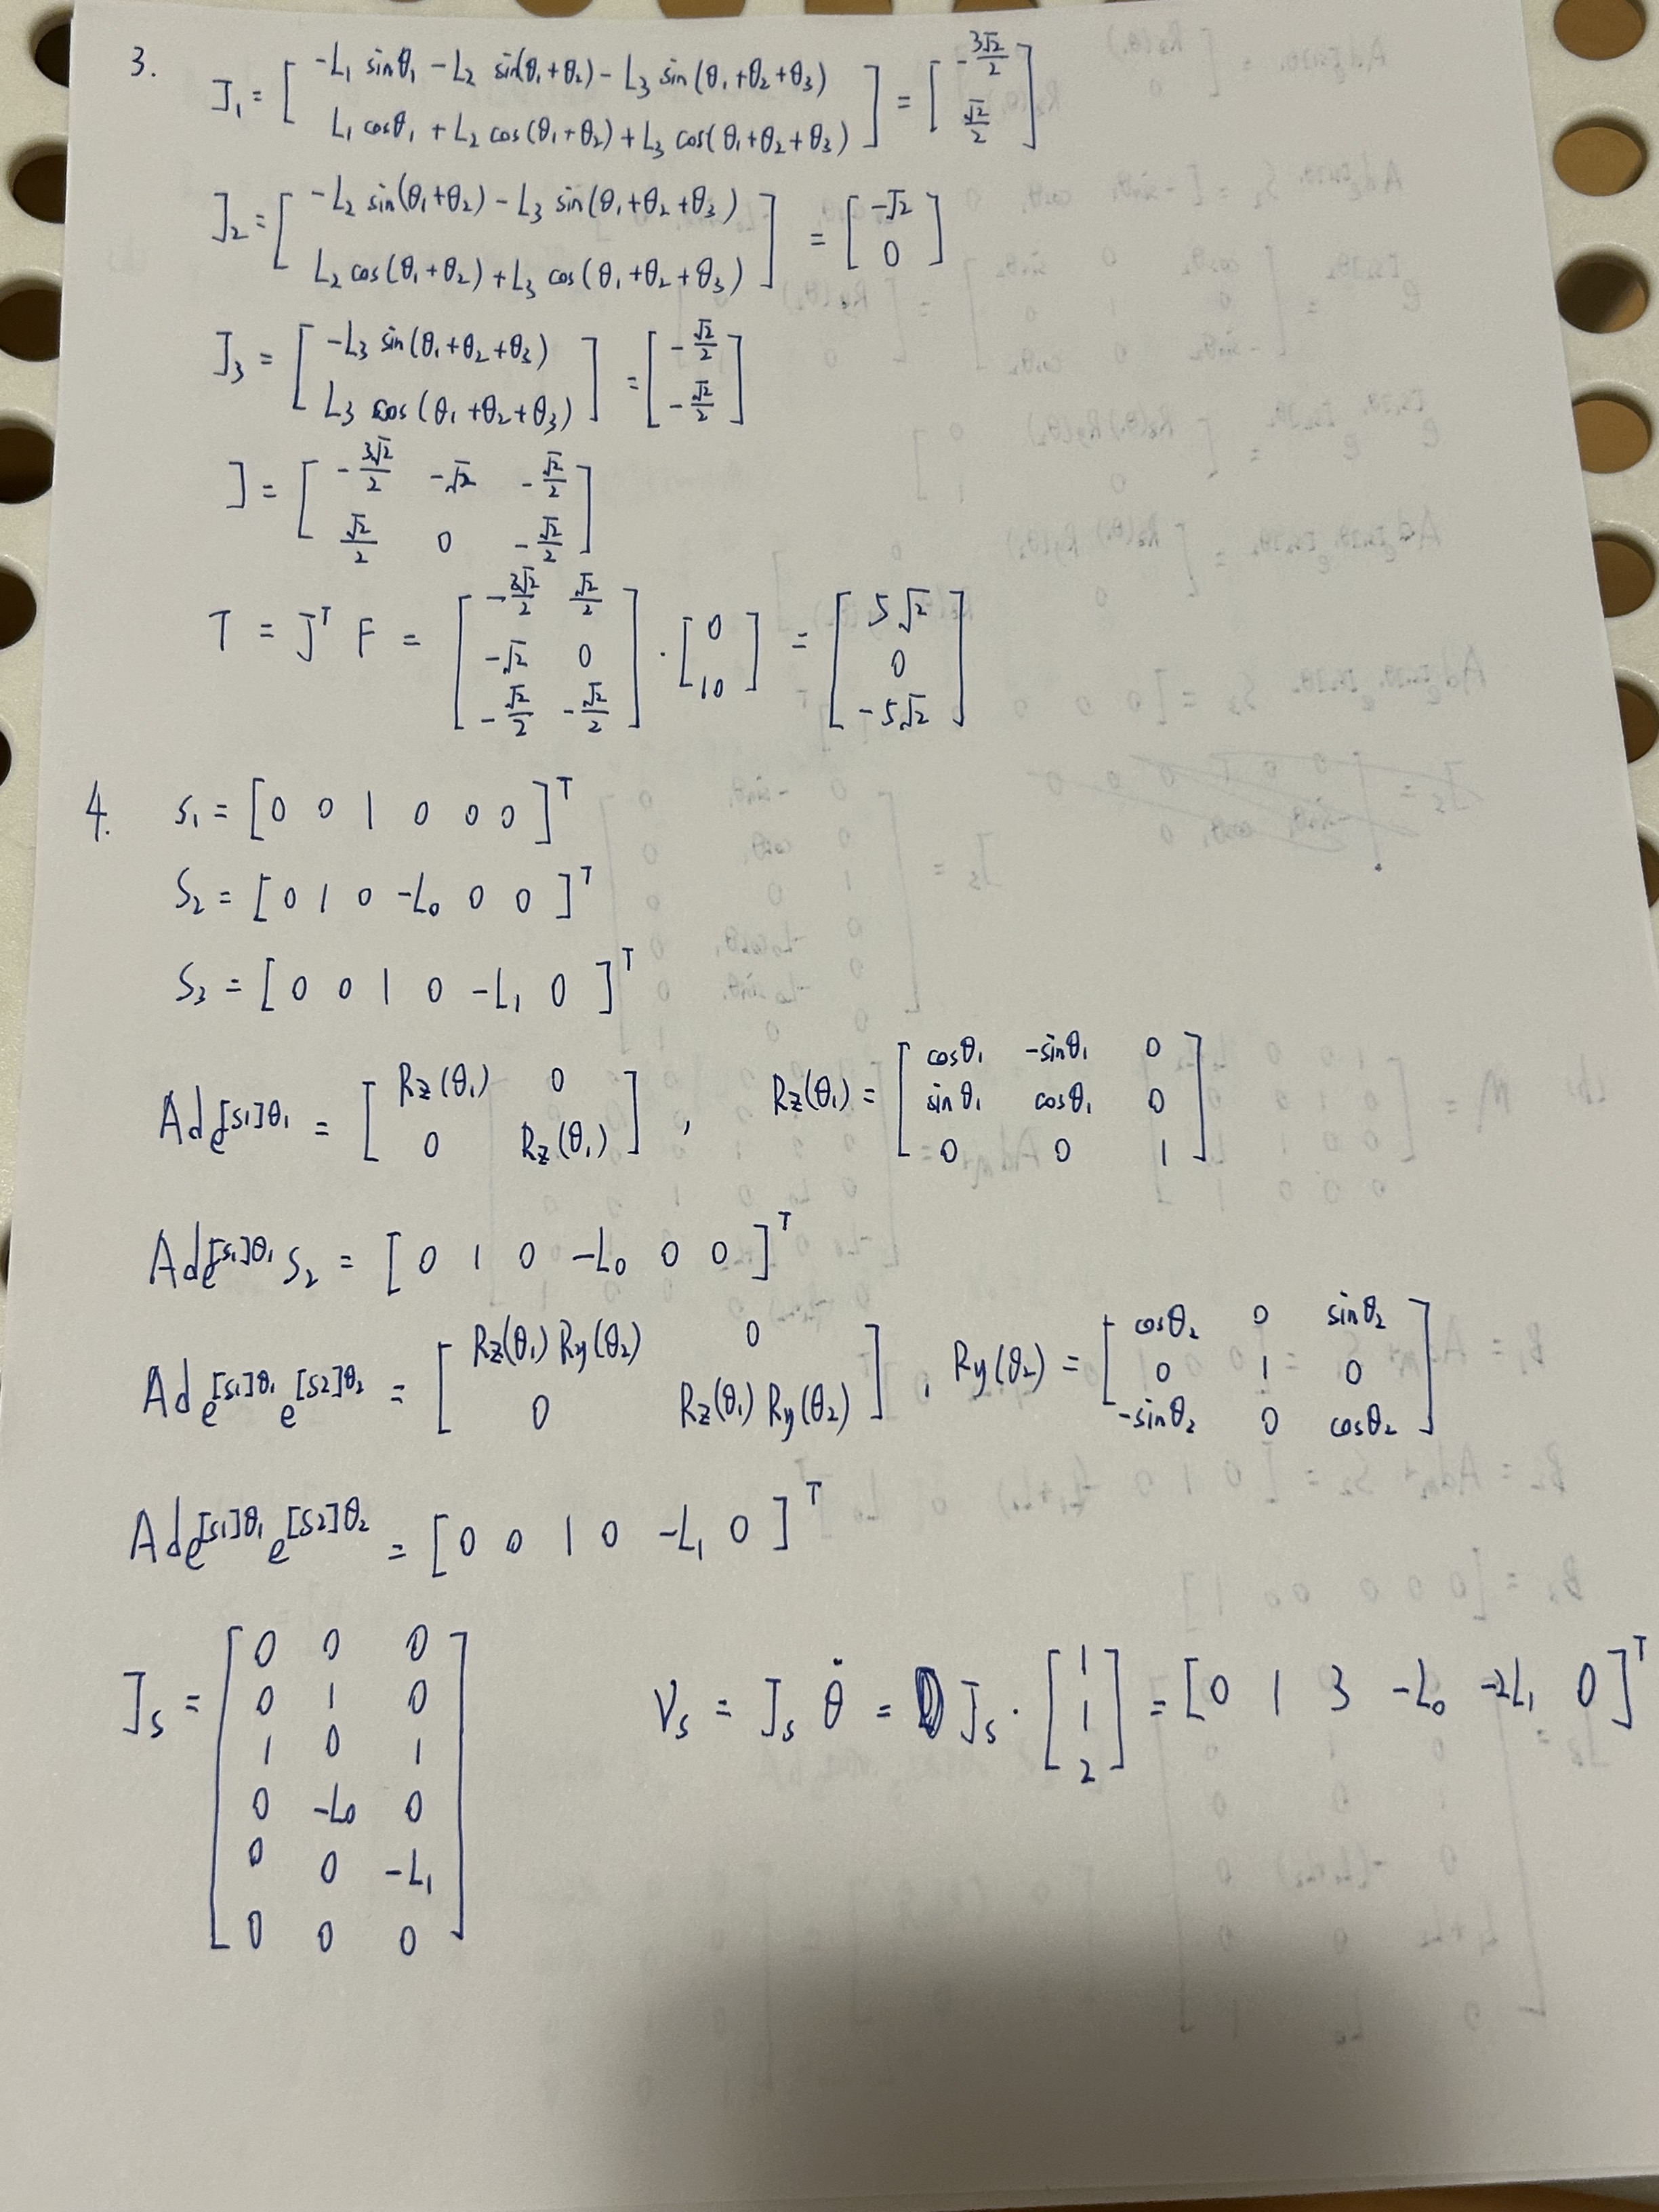 3.
J₁ = [ -L₁ sinθ₁ - L₂ sin(θ₁+θ₂) - L₃ sin(θ₁+θ₂+θ₃) ; L₁ cosθ₁ + L₂ cos(θ₁+θ₂) + L₃ cos(θ₁+θ₂+θ₃) ] = [ -3√2/2 ; √2/2 ]
J₂ = [ -L₂ sin(θ₁+θ₂) - L₃ sin(θ₁+θ₂+θ₃) ; L₂ cos(θ₁+θ₂) + L₃ cos(θ₁+θ₂+θ₃) ] = [ -√2 ; 0 ]
J₃ = [ -L₃ sin(θ₁+θ₂+θ₃) ; L₃ cos(θ₁+θ₂+θ₃) ] = [ -√2/2 ; -√2/2 ]
J = [ -3√2/2 -√2 -√2/2 ; √2/2 0 -√2/2 ]
T = Jᵀ F = [ -3√2/2 √2/2 ; -√2 0 ; -√2/2 -√2/2 ] · [ 0 ; 10 ] = [ 5√2 ; 0 ; -5√2 ]
4. S₁ = [0 0 1 0 0 0]ᵀ
S₂ = [0 1 0 -L₀ 0 0]ᵀ
S₃ = [0 0 1 0 -L₁ 0]ᵀ
Ad e^[S₁]θ₁ = [ Rz(θ₁) 0 ; 0 Rz(θ₁) ] , Rz(θ₁) = [ cosθ₁ -sinθ₁ 0 ; sinθ₁ cosθ₁ 0 ; 0 0 1 ]
Ad e^[S₁]θ₁ S₂ = [0 1 0 -L₀ 0 0]ᵀ
Ad e^[S₁]θ₁ e^[S₂]θ₂ = [ Rz(θ₁) Ry(θ₂) 0 ; 0 Rz(θ₁) Ry(θ₂) ] , Ry(θ₂) = [ cosθ₂ 0 sinθ₂ ; 0 1 0 ; -sinθ₂ 0 cosθ₂ ]
Ad e^[S₁]θ₁ e^[S₂]θ₂ = [0 0 1 0 -L₁ 0]ᵀ
Js = [ 0 0 0 ; 0 1 0 ; 1 0 1 ; 0 -L₀ 0 ; 0 0 -L₁ ; 0 0 0 ]
Vs = Js θ̇ = Js · [ 1 ; 1 ; 2 ] = [0 1 3 -L₀ -2L₁ 0]ᵀ